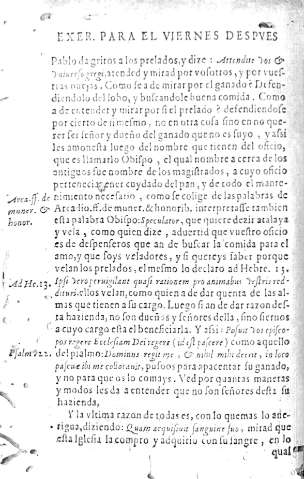 EXER. PARA EL VIERNES DESPVES
Pablo da gritos a los prelados, y dize: Attendite vos &
vniuerso gregi, atended y mirad por vosotros, y por vues-
tras ouejas. Como se a de mirar por el ganado? Defen-
diendolo del lobo, y buscandole buena comida. Como
a de entender y mirar por si el prelado? defendiendose
por cierto de si mesmo, y en otra cosa sino en no que-
rer ser señor y dueño del ganado que no es suyo, y assi
les amonesta luego del nombre que tienen del oficio,
que es llamarlo Obispo, el qual nombre a cerca de los
antiguos fue nombre de los magistrados, a cuyo oficio
pertenecia tener cuydado del pan, y de todo el mante-
Arca. ff. de
muner. &
honor.
nimiento necesario, como se colige de las palabras de
Arcadio. ff. de muner. & honorib. interpretasse tambien
esta palabra Obispo: Speculator, que quiere dezir atalaya
y vela, como quien dize, aduertid que vuestro oficio
es de despenseros que an de buscar la comida para el
amo, y que soys veladores, y si quereys saber porque
velan los prelados, el mesmo lo declaro ad Hebre. 13.
Ad He. 13.
Ipsi vero peruigilant quasi rationem pro animabus vestris red-
dituri. ellos velan, como quien a de dar quenta de las al-
mas que tienen a su cargo. Luego si an de dar razon des-
ta hazienda, no son dueños y señores della, sino sieruos
a cuyo cargo esta el beneficiarla. Y assi: Posuit vos episco-
pos regere Ecclesiam Dei regere (id est pascere) como aquello
Psalm. 22.
del psalmo: Dominus regit me, & nihil mihi deerit, in loco
pascuæ ibi me collocauit, pusoos para apacentar su ganado,
y no para que os lo comays. Ved por quantas maneras
y modos les da a entender que no son señores desta su
hazienda,
Y la vltima razon de todas es, con lo quemas lo aue-
rigua, diziendo: Quam acquisiuit sanguine suo, mirad que
esta Iglesia la compro y adquirio con su sangre, en lo
qual